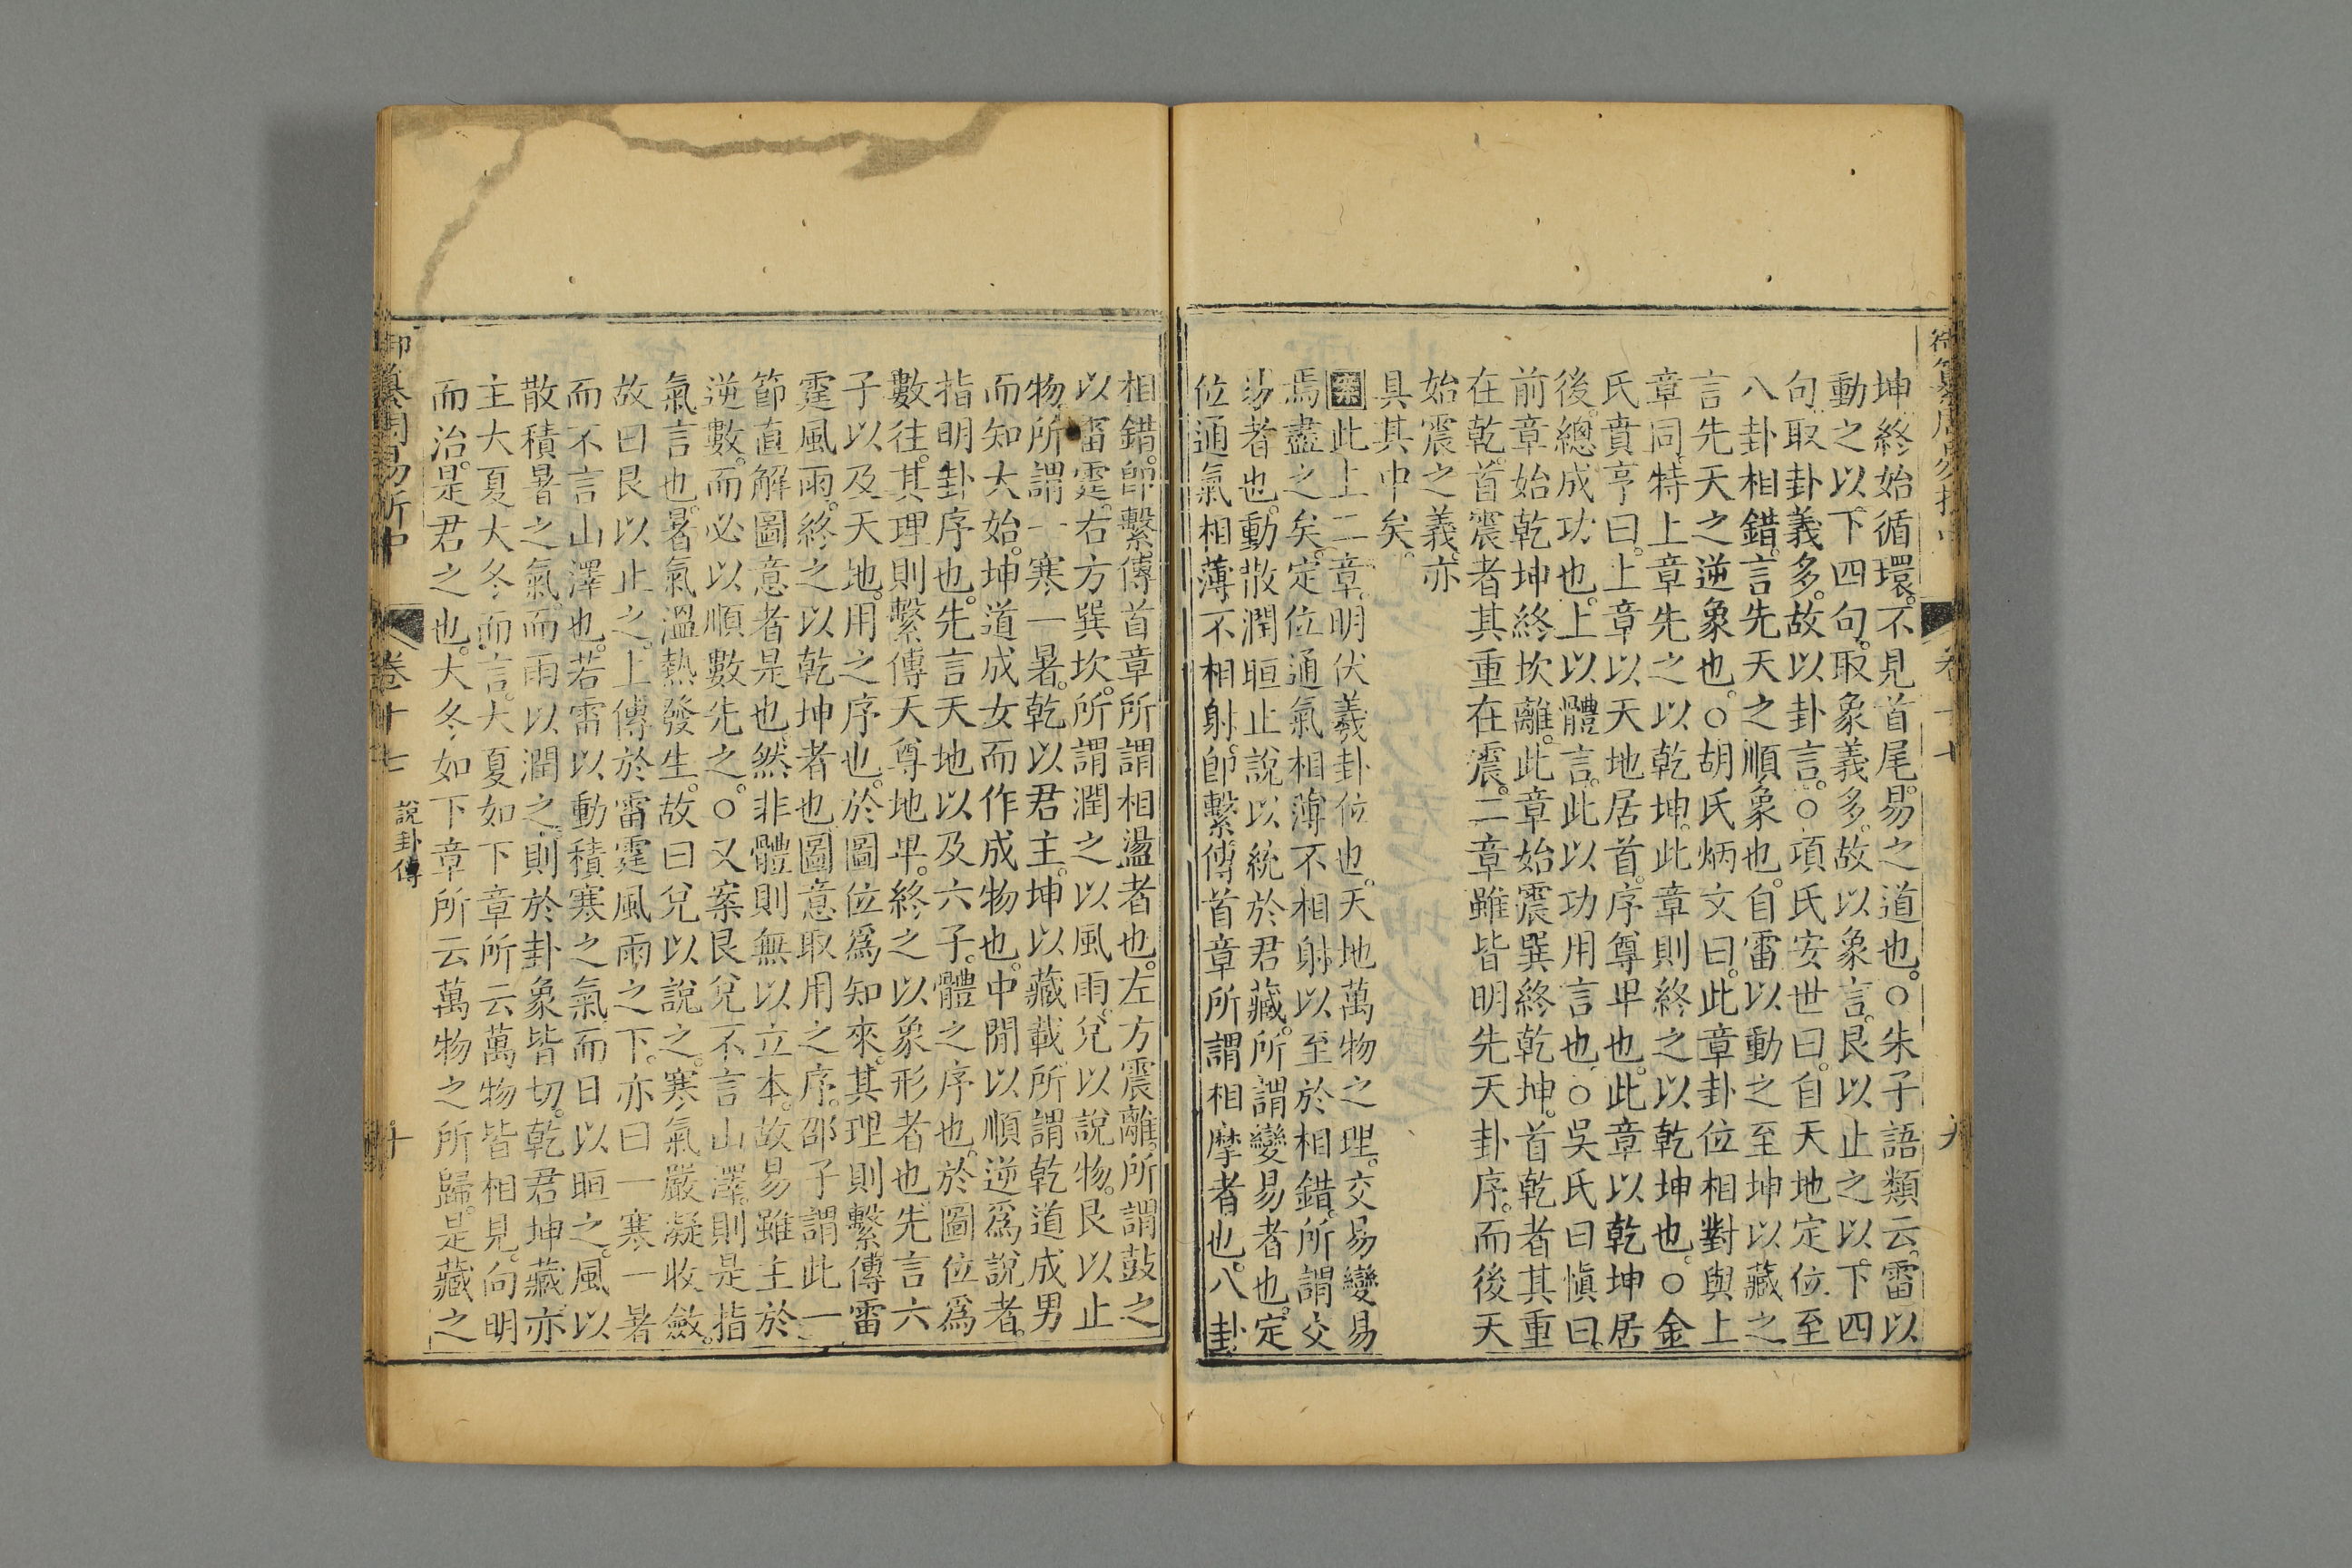 坤終始循環。不見首尾。易之道也。○朱子語類云。雷以
動之以下四句。取象義多。故以象言。艮以止之以下四
句。取卦義多。故以卦言。○項氏安世曰。自天地定位至
八卦相錯。言先天之順象也。自雷以動之至坤以藏之
言先天之逆象也。○胡氏炳文曰。此章卦位相對與上
章同。特上章先之以乾坤。此章則終之以乾坤也。○金
氏賁亨曰。上章以天地居首。序尊卑也。此章以乾坤居
後。總成功也。上以體言。此以功用言也。○吳氏曰愼曰。
前章始乾坤終坎離。此章始震巽終乾坤。首乾者其重
在乾。首震者其重在震。二章雖皆明先天卦序。而後天
始震之義。亦
具其中矣。
案此上二章。明伏羲卦位也。天地萬物之理。交易變易
焉盡之矣。定位通氣相薄不相射。以至於相錯。所謂交
易者也。動散潤晅止說以統於君藏。所謂變易者也。定
位通氣相薄不相射。卽繫傳首章所謂相摩者也。八卦
相錯。卽繫傳首章所謂相盪者也。左方震離。所謂鼓之
以雷霆。右方巽坎。所謂潤之以風雨。兌以說物。艮以止
物。所謂一寒一暑。乾以君主。坤以藏載。所謂乾道成男
而知大始。坤道成女而作成物也。中閒以順逆爲說者。
指明卦序也。先言天地以及六子。體之序也。於圖位爲
數往。其理則繫傳天尊地卑。終之以象形者也。先言六
子以及天地。用之序也。於圖位爲知來。其理則繫傳雷
霆風雨。終之以乾坤者也。圖意取用之序。邵子謂此一
節直解圖意者是也。然非體則無以立本。故易雖主於
逆數。而必以順數先之。○又案艮兌不言山澤。則是指
氣言也。暑氣溫熱發生。故曰兌以說之。寒氣嚴凝收斂。
故曰艮以止之。上傳於雷霆風雨之下。亦曰一寒一暑
而不言山澤也。若雷以動積寒之氣。而日以晅之。風以
散積暑之氣。而雨以潤之。則於卦象皆切。乾君坤藏。亦
主大夏大冬而言。大夏如下章所云萬物皆相見。向明
而治。是君之也。大冬如下章所云萬物之所歸。是藏之
御纂周易折中
卷十七
說卦傳
十